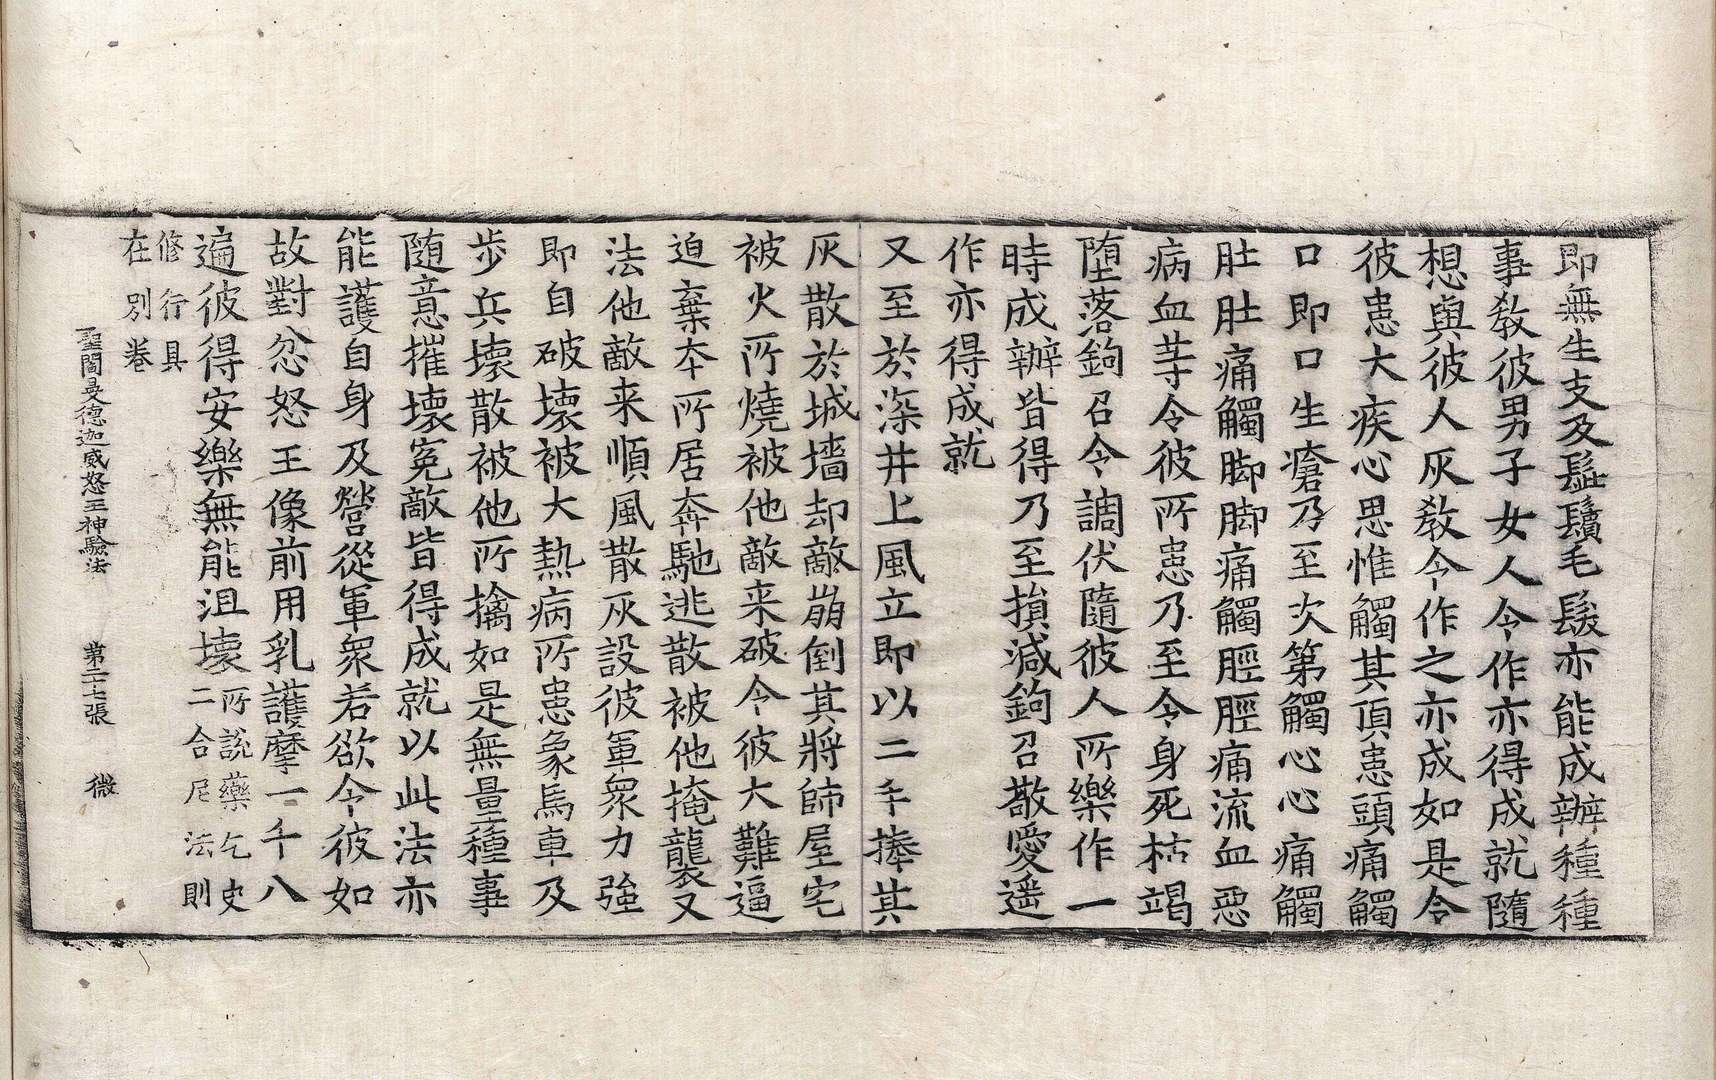 即無生支及髭鬚毛髮亦能成辦種種
事教彼男子女人令作亦得成就隨
想與彼人灰教令作之亦成如是令
彼患大疾心思惟觸其頂患頭痛觸
口即口生瘡乃至次第觸心心痛觸
肚肚痛觸脚脚痛觸脛脛痛流血惡
病血䓁令彼所患乃至令身死枯竭
墮落鉤召令調伏隨彼人所樂作一
時成辦皆得乃至損減鉤召敬愛遥
作亦得成就
又至於深井上風立即以二手捧其
灰散於城墻却敵崩倒其將師屋宅
被火所燒被他敵来破令彼大難逼
迫棄夲所居奔馳逃散被他掩襲又
法他敵来順風散灰設彼軍衆力強
即自破壞被大熱病所患象馬車及
步兵壞散被他所擒如是無量種事
随意摧壞寃敵皆得成就以此法亦
能護自身及營從軍衆若欲令彼如
故對忿怒王像前用乳護摩一千八
遍彼得安樂無能沮壞所說藥乞史二合尼法則
修行具在別卷
聖閻曼德迦威怒王神驗法　第二十七張　微